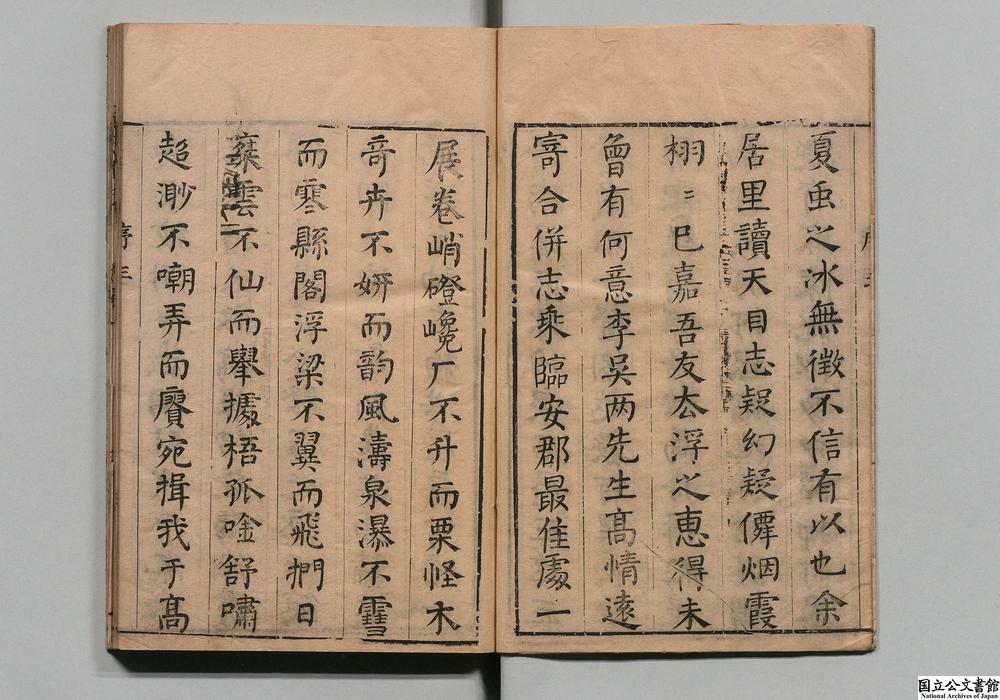 夏虫之冰無徵不信有以也余
居里讀天目志疑幻疑僊烟霞
栩〻已嘉吾友太浮之惠得未
曾有何意李吳两先生高情遠
寄合併志乘臨安郡最佳處一
展卷峭磴巉厂不升而栗怪木
奇卉不妍而韵風濤泉瀑不雪
而寒縣閣浮梁不翼而飛捫日
雲不仙而舉據梧孤唫舒嘯
超渺不嘲弄而賡宛揖我于高
序 三
国立公文書館
National Archives of Japan